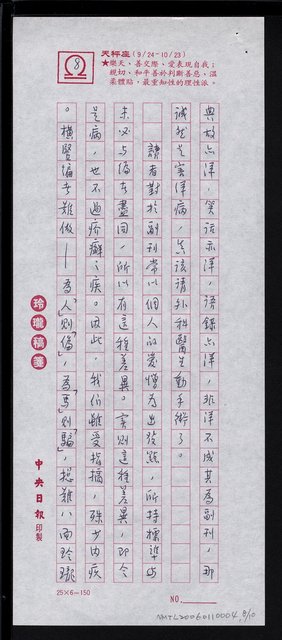 ⑧
天秤座(9/24-10/23)
★樂天、善交際、愛表現自我;
親切、和平善於判斷善惡、溫
柔體貼,最重知性的理性派。
典故亦洋,笑話亦洋,語錄亦洋,非洋不成其為副刊,那
誠然是害洋病,真該請外科醫生動手術了。
讀者對於副刊常以個人的愛憎為出發點,所持標準與
未必与編者盡同,所以有這種差異。實則這種差異,即令
是病,也不過疥癬之疾。因此,我们雖受指摘,殊少內疚
。橫豎編者難做——為「人」則「偽」,為「馬」則「騙」,想難八面玲瓏
玲瓏稿箋
中央日報印製
25×6=150
NO.
NMTL20060110004, 8/10